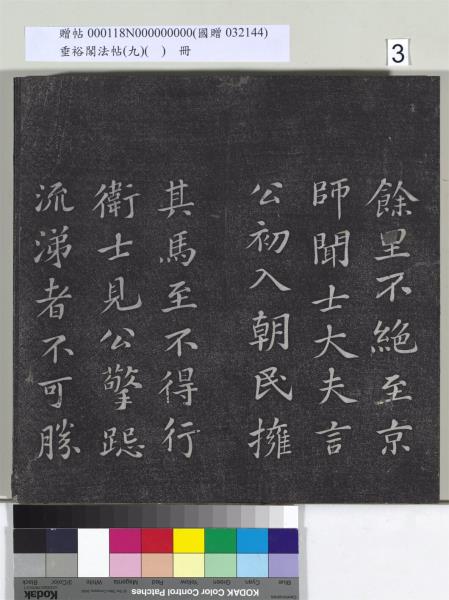 贈帖 000118N000000000(國贈 032144)
垂裕閣法帖(九)( ) 冊
3
餘里不絕至京
師聞士大夫言
公初入朝民擁
其馬至不得行
衛士見公擎跽
流涕者不可勝
Blue Cyan Green Yellow Red Magenta White 3/Color Black
Kodak KODAK Color Control Patches